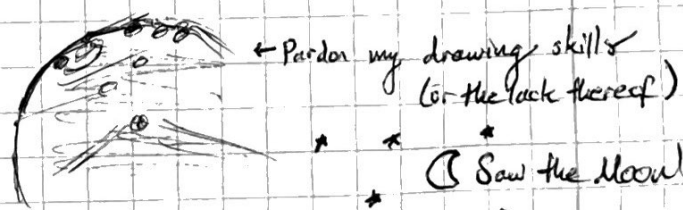 ← Pardon my drawing skills
(or the lack thereof)
Saw the Moon!